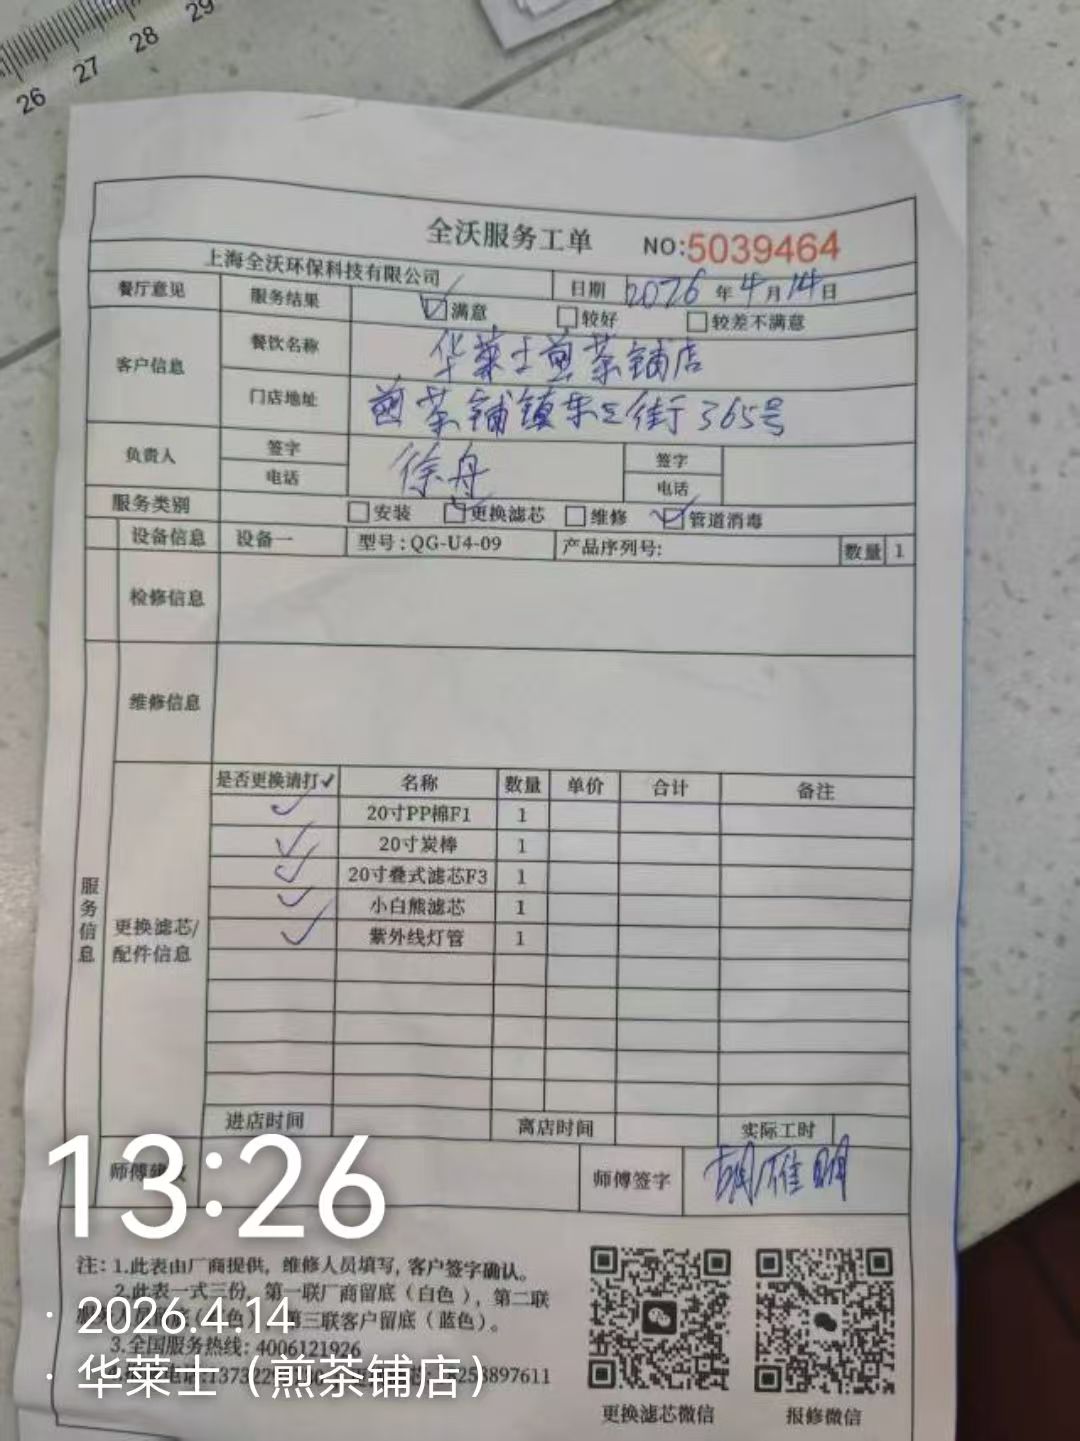 26 27 28 29
全沃服务工单 NO:5039464
上海全沃环保科技有限公司 日期 2026年4月14日
餐厅意见 服务结果 ☑满意 □较好 □较差不满意
客户信息 餐饮名称 华莱士煎茶铺店
门店地址 煎茶铺镇东 街365号
负责人 签字 徐丹 签字
电话 电话
服务类别 □安装 ☑更换滤芯 □维修 ☑管道消毒
设备信息 设备一 型号:QG-U4-09 产品序列号: 数量 1
检修信息
维修信息
服务信息
更换滤芯/配件信息
是否更换请打✓ 名称 数量 单价 合计 备注
✓ 20寸PP棉F1 1
✓ 20寸炭棒 1
✓ 20寸叠式滤芯F3 1
✓ 小白熊滤芯 1
✓ 紫外线灯管 1
进店时间 离店时间 实际工时
师傅建议 师傅签字 胡雁明
13:26
注: 1.此表由厂商提供, 维修人员填写, 客户签字确认。
2.此表一式三份, 第一联厂商留底(白色), 第二联
第三联客户留底(蓝色)。
3.全国服务热线: 4006121926
· 2026.4.14
· 华莱士（煎茶铺店）
更换滤芯微信 报修微信